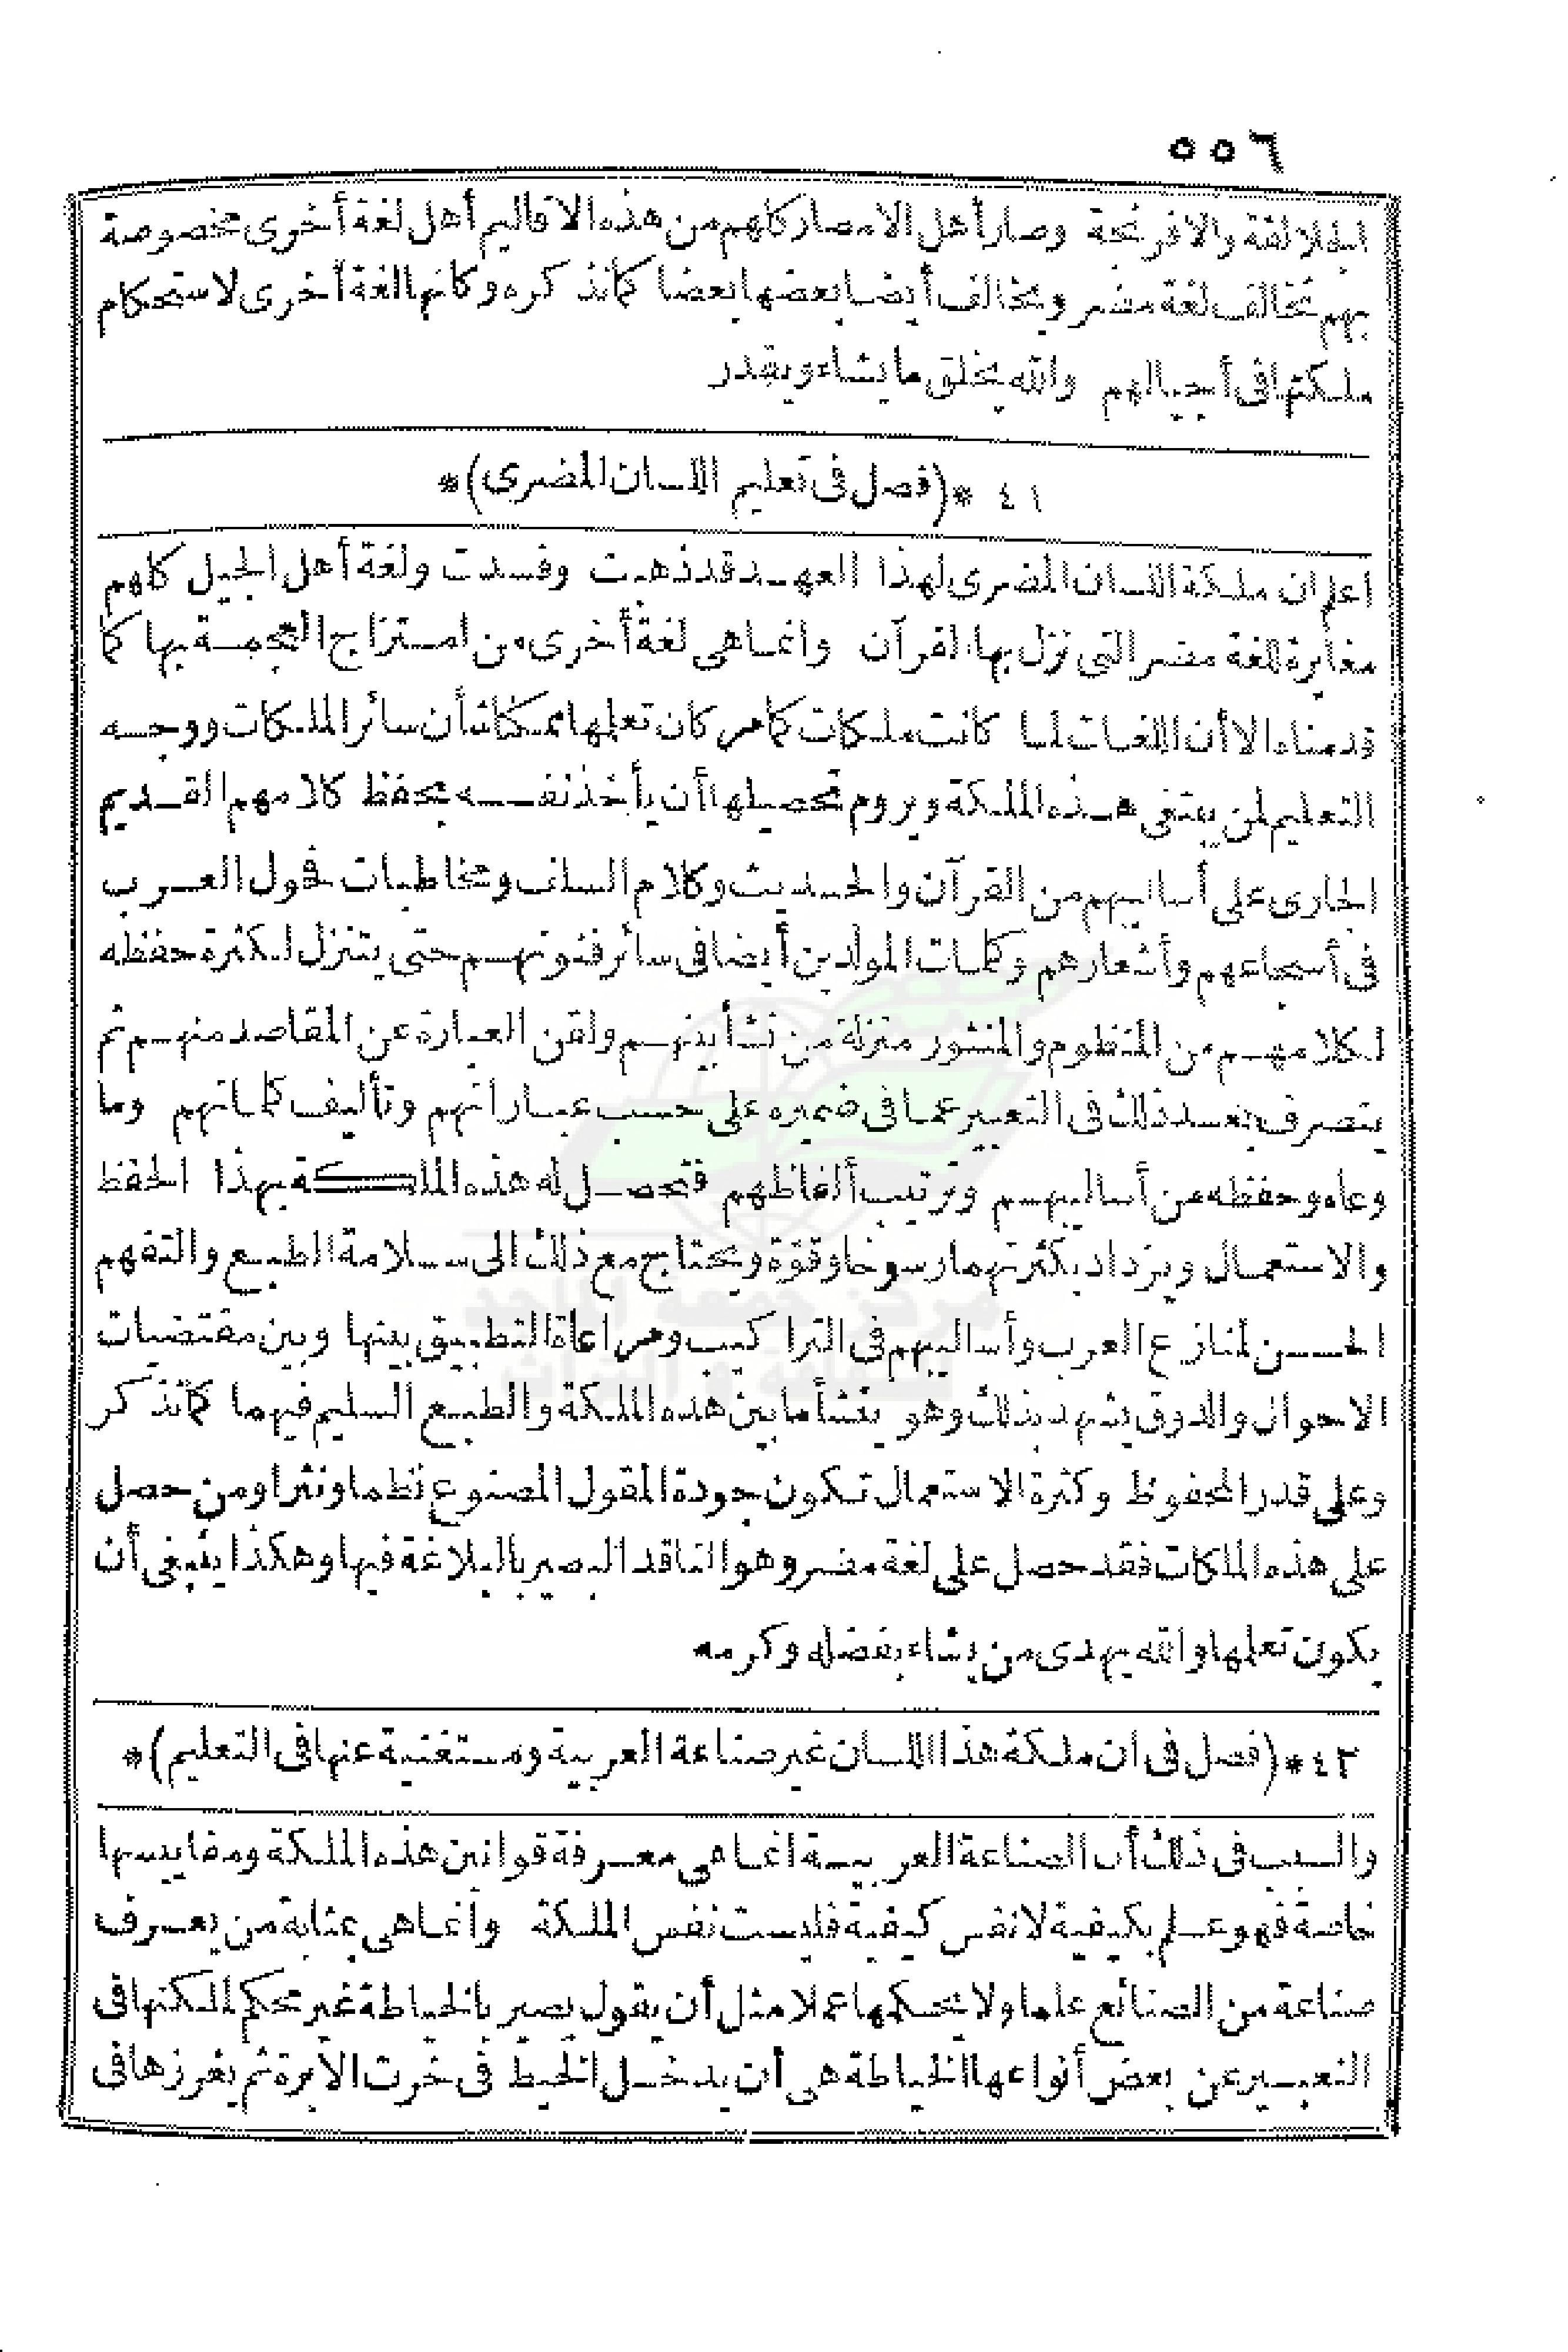 ٥٥٦
الجلالقة والافرنجة وصار أهل الامصار كلهم من هذه الاقاليم أهل لغة أخرى مخصوصة
بهم تخالف لغة مضر ويخالف أيضا بعضها بعضا كما نذكره وكأنها لغة أخرى لاستحكام
ملكتها فى أجيالهم والله يخلق ما يشاء ويقدر
٤١ *(فصل فى تعليم اللسان المضرى)*
اعلم ان ملكة اللسان المضرى لهذا العهد قد ذهبت وفسدت ولغة أهل الجيل كلهم
مغايرة للغة مضر التى نزل بها القرآن وانما هى لغة أخرى من امتزاج العجمة بها كما
قدمناه الا أن اللغات لما كانت ملكات كما مر كان تعلمها ممكنا شأن سائر الملكات ووجه
التعليم لمن يبتغى هذه الملكة ويروم تحصيلها أن يأخذ نفسه بحفظ كلامهم القديم
الجارى على أساليبهم من القرآن والحديث وكلام السلف ومخاطبات فحول العرب
فى أسجاعهم وأشعارهم وكلمات المولدين أيضا فى سائر فنونهم حتى يتنزل لكثرة حفظه
لكلامهم من المنظوم والمنثور منزلة من نشأ بينهم ولقن العبارة عن المقاصد منهم ثم
يتصرف بعد ذلك فى التعبير عما فى ضميره على حسب عباراتهم وتأليف كلماتهم وما
وعاه وحفظه من أساليبهم وترتيب ألفاظهم فتحصل له هذه الملكة بهذا الحفظ
والاستعمال ويزداد بكثرتهما رسوخا وقوّة ويحتاج مع ذلك الى سلامة الطبع والتفهم
الحسن لمنازع العرب وأساليبهم فى التراكيب ومراعاة التطبيق بينها وبين مقتضيات
الاحوال والذوق يشهد بذلك وهو ينشأ ما بين هذه الملكة والطبع السليم فيهما كما نذكر
وعلى قدر المحفوظ وكثرة الاستعمال تكون جودة المقول المصنوع نظما ونثرا ومن حصل
على هذه الملكات فقد حصل على لغة مضر وهو الناقد البصير بالبلاغة فيها وهكذا ينبغى أن
يكون تعلمها والله يهدى من يشاء بفضله وكرمه
٤٢ *(فصل فى ان ملكة هذا اللسان غير صناعة العربية ومستغنية عنها فى التعليم)*
والسبب فى ذلك أن الصناعة العربية انما هى معرفة قوانين هذه الملكة ومقاييسها
خاصة فهو علم بكيفية لا نفس كيفية فليست نفس الملكة وانما هى بمثابة من يعرف
صناعة من الصنائع علما ولا يحكمها عملا مثل أن يقول بصير بالخياطة غير محكم لملكتها فى
التعبير عن بعض أنواعها الخياطة هى أن يدخل الخيط فى خرت الابرة ثم يغرزها فى
مركز جمعة الماجد
للثقافة و التراث